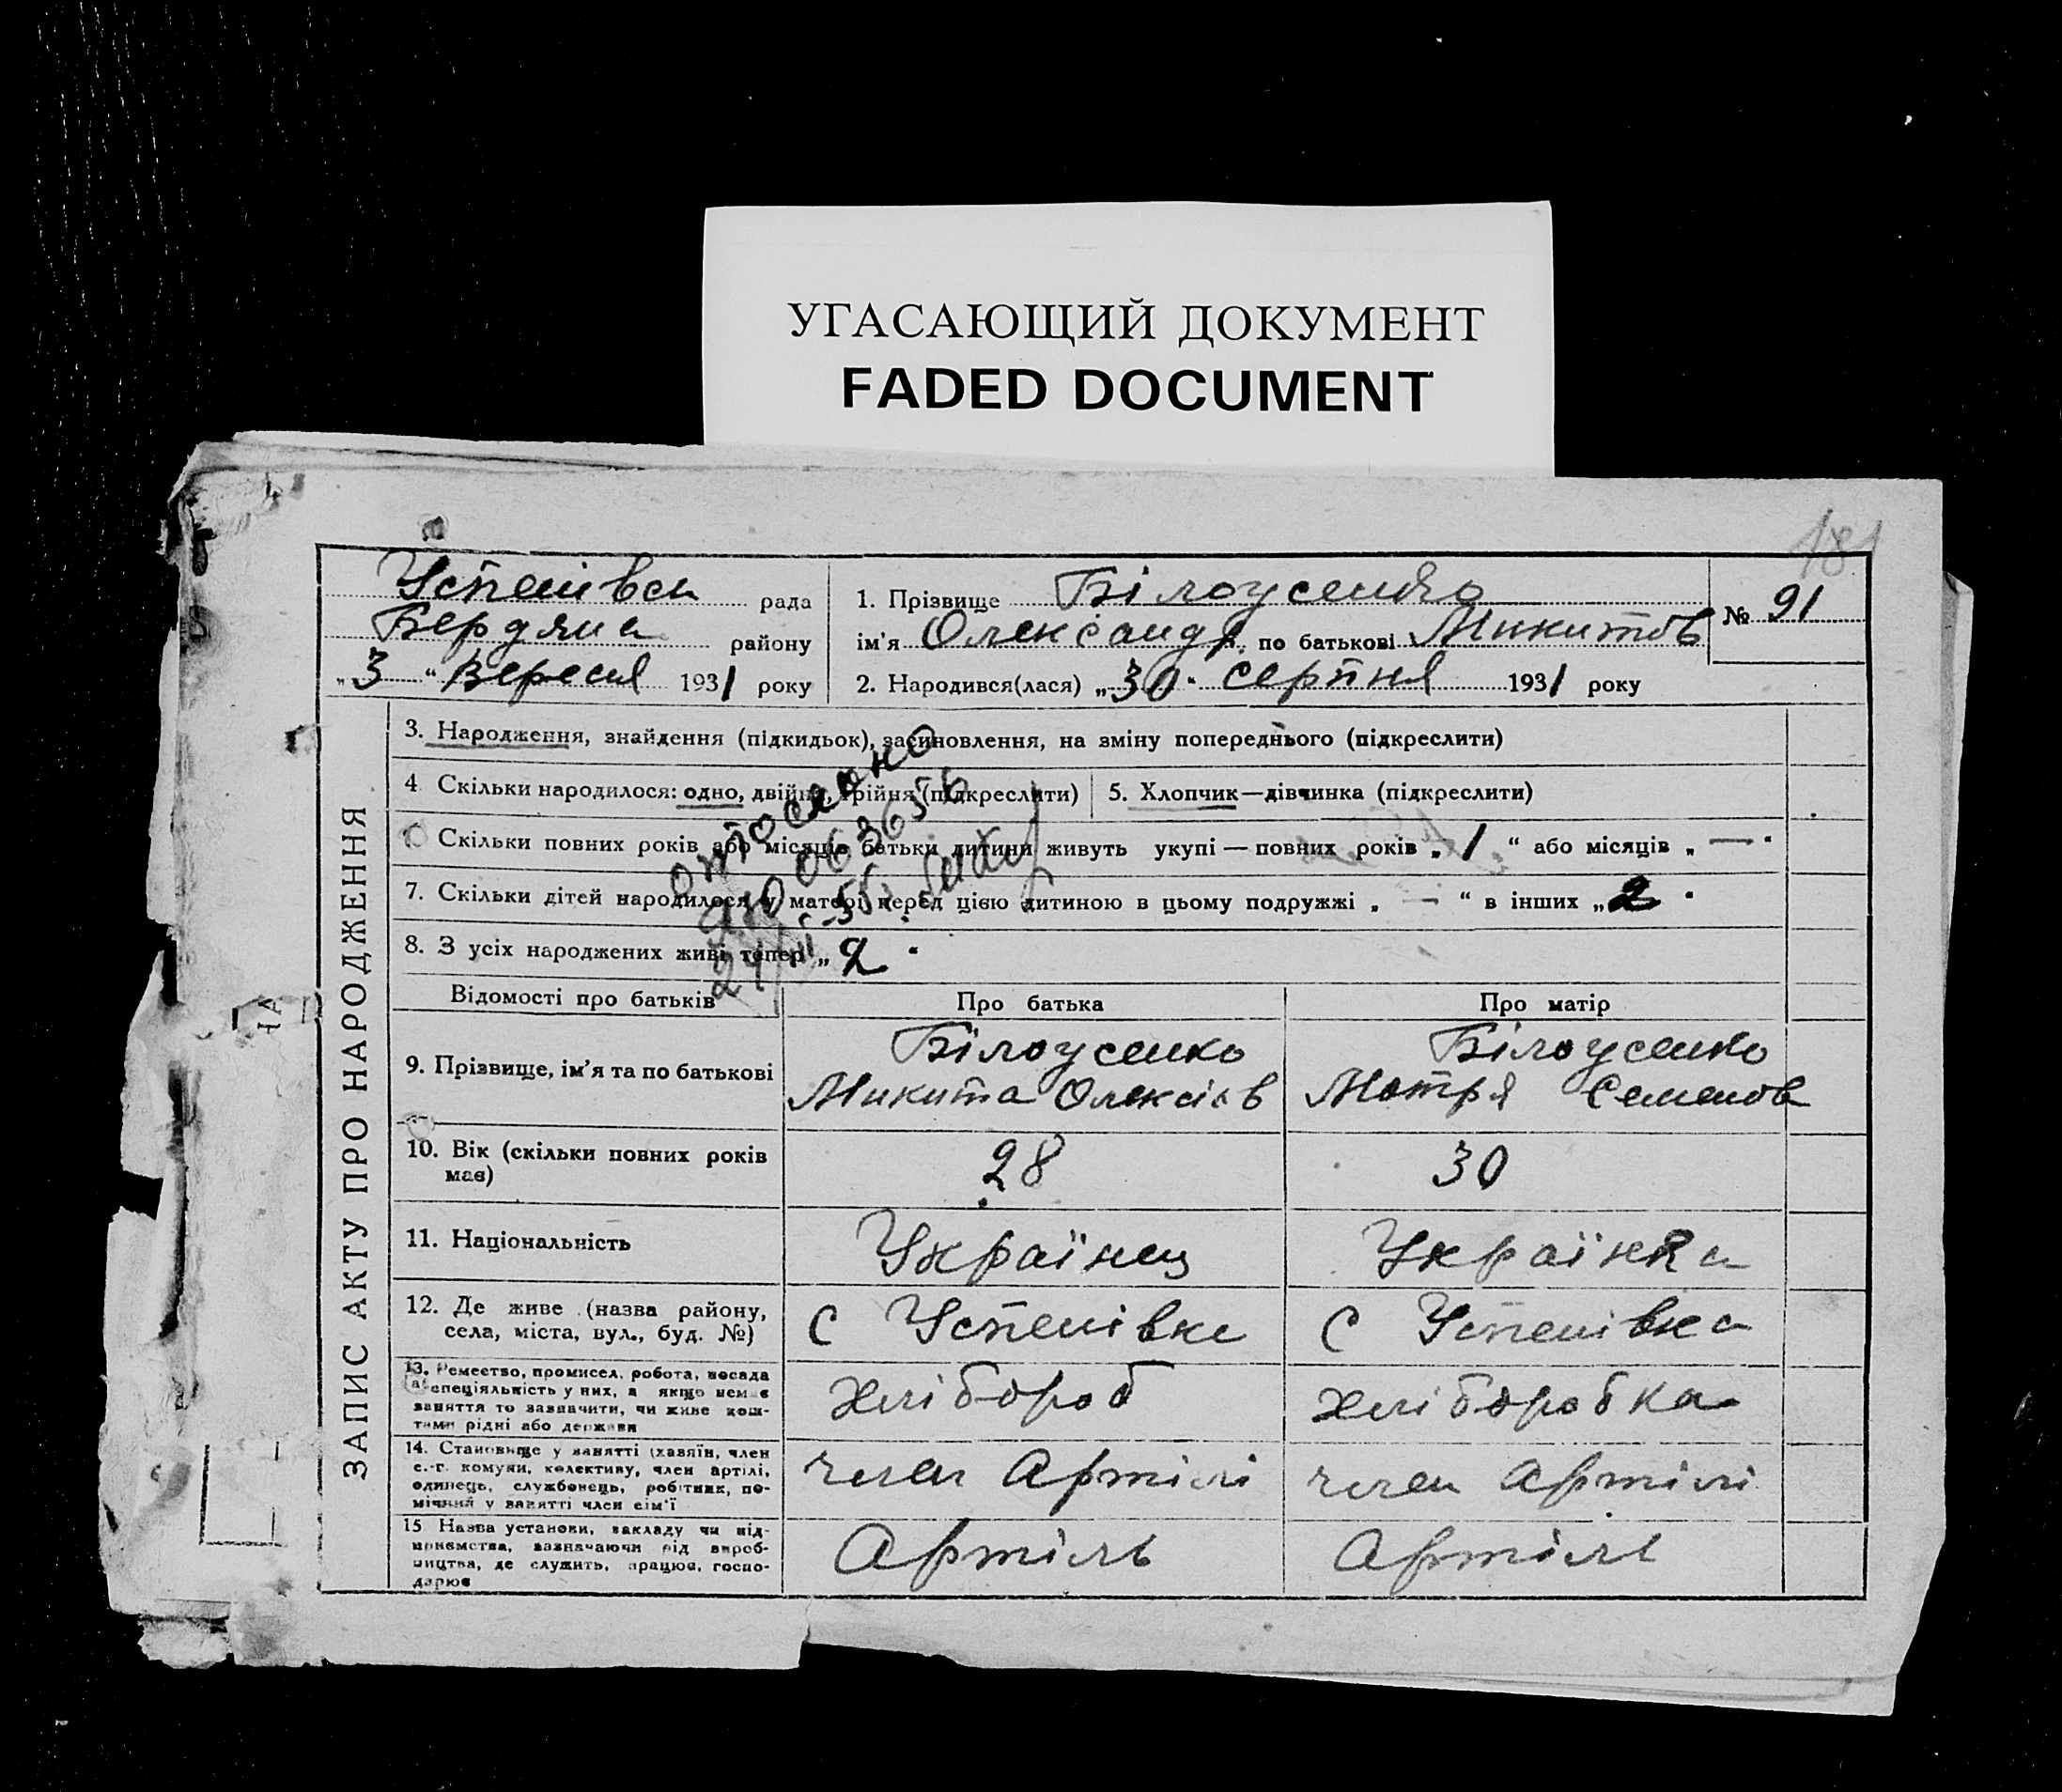 УГАСАЮЩИЙ ДОКУМЕНТ
FADED DOCUMENT
181
Успенівськ рада
Бердянс району
„3“ Вересня 1931 року
1. Прізвище Білоусенко
ім'я Олександр по батькові Микитов
2. Народився(лася) „30“ серпня 1931 року
№ 91
ЗАПИС АКТУ ПРО НАРОДЖЕННЯ
3. Народження, знайдення (підкидьок), засиновлення, на зміну попереднього (підкреслити)
4 Скільки народилося: одно, двійня, трійня (підкреслити)
5. Хлопчик—дівчинка (підкреслити)
Скільки повних років або місяців батьки дитини живуть укупі — повних років „1“ або місяців „—“
7. Скільки дітей народилося у матері перед цією дитиною в цьому подружжі „—“ в інших „2“
8. З усіх народжених живі тепер „2“
отослано
063656
Відомості про батьків
Про батька
Про матір
9. Прізвище, ім'я та по батькові
Білоусенко
Микита Олексієв
Білоусенко
Мотря Семенов
10. Вік (скільки повних років
має)
28
30
11. Національність
Українец
Українка
12. Де живе (назва району,
села, міста, вул., буд. №)
С Успенівка
С Успенівка
13. Ремество, промисел, робота, посада
спеціяльність у них, а якщо немає
заняття то зазначити, чи живе кош-
тами рідні або держави
Хлібороб
Хліборобка
14. Становище у занятті (хазяїн, член
с.-г. комуни, колективу, член артілі,
одинець, службовець, робітник, по-
мічний у занятті член сім'ї
член Артілі
член Артілі
15 Назва установи, закладу чи під-
приємства, зазначаючи рід вироб-
ництва, де служить, працює, госпо-
дарює
Артіль
Артіль